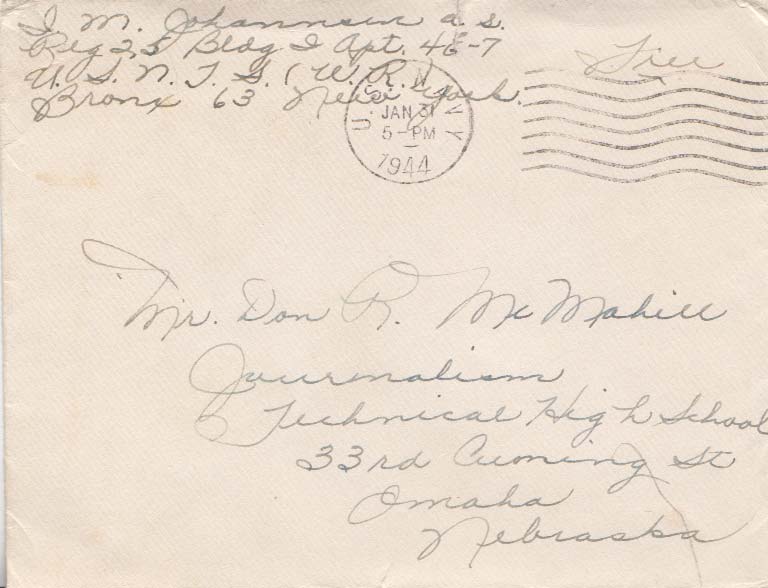 I M. Johannsen a. s.
Reg 25 Bldg I Apt. 4E-7
U. S. N. T. S. (W. R.)
Bronx 63 New York.
Free
U. S. NAVY
JAN 31
5-PM
1944
Mr. Don R. McMahill
Journalism
Technical High School
33rd Cuming St
Omaha
Nebraska